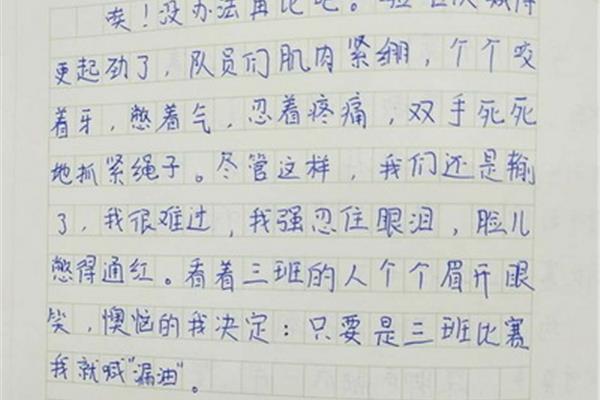 唉！没办法再比吧。
更起劲了，队员们肌肉紧绷，个个咬
着牙，憋着气，忍着疼痛，双手死死
地抓紧绳子。尽管这样，我们还是输
了，我很难过，我强忍住眼泪，脸儿
憋得通红。看着三班的人个个眉开眼
笑，懊恼的我决定：只要是三班比赛
我就喊“漏油”。